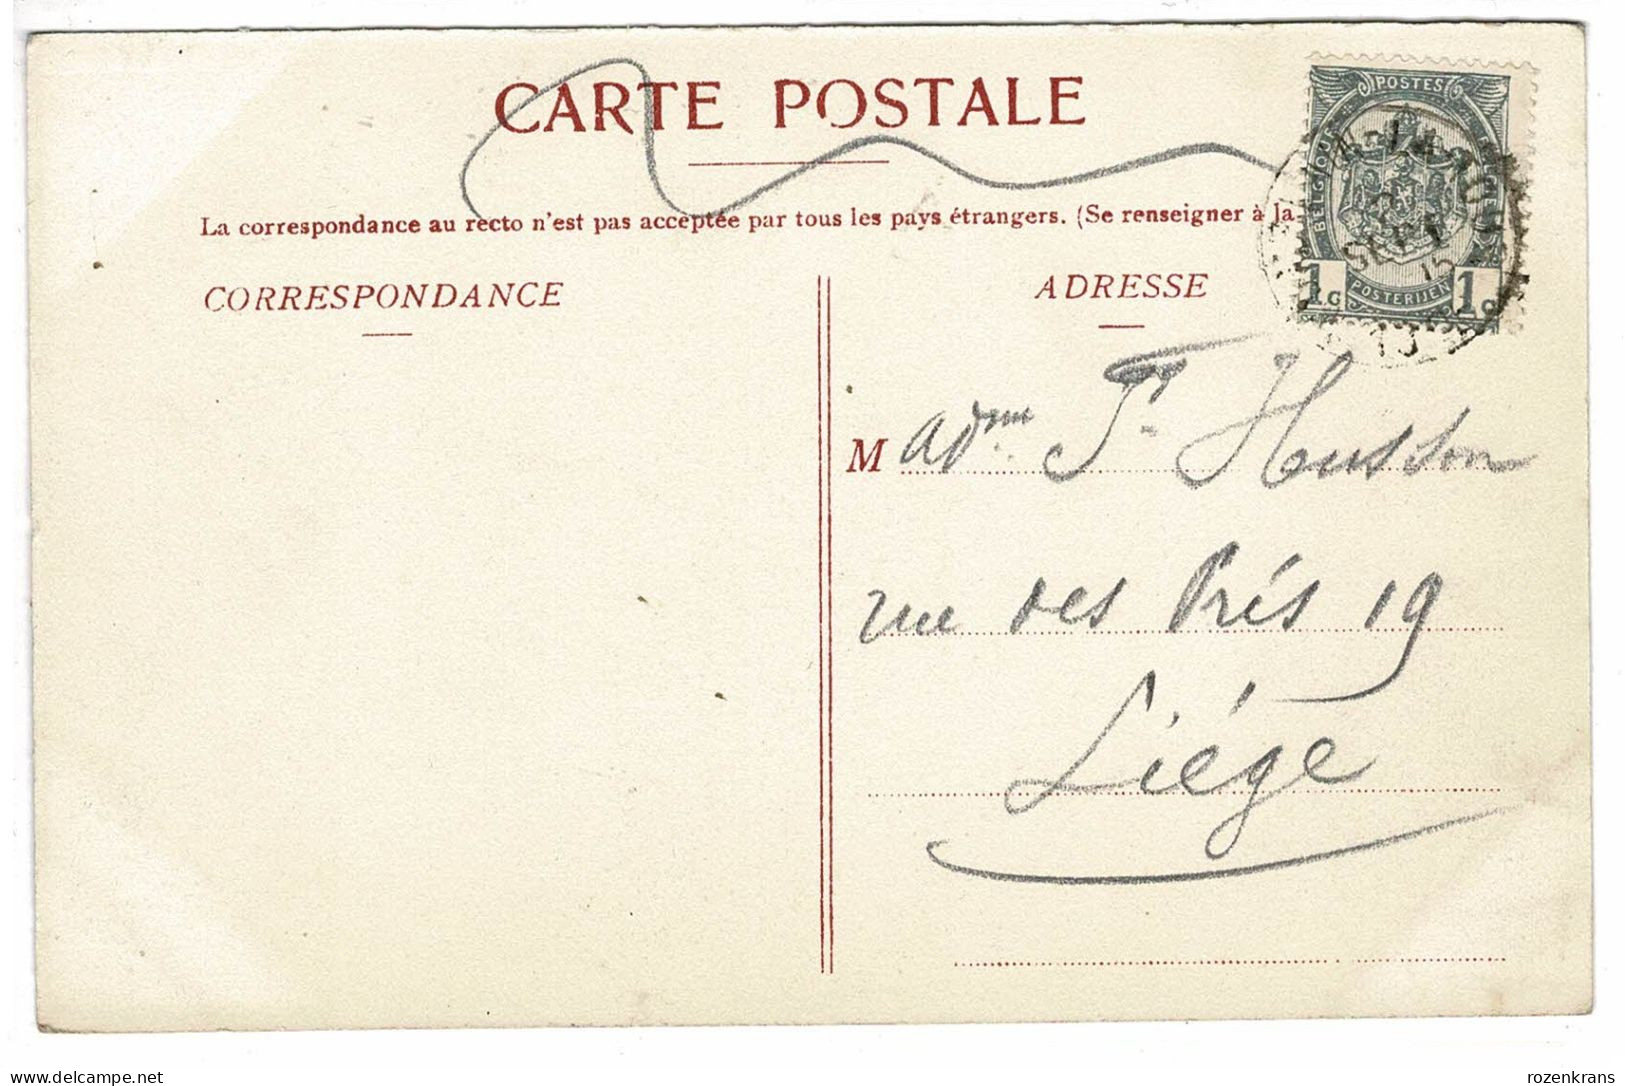 CARTE POSTALE
La correspondance au recto n'est pas acceptée par tous les pays étrangers. (Se renseigner à la
CORRESPONDANCE
ADRESSE
POSTES
BELGIQUE
SEPT
15
1c POSTERIJEN 1c
Madme Husson
rue des Prés 19
Liége
delcampe.net
rozenkrans